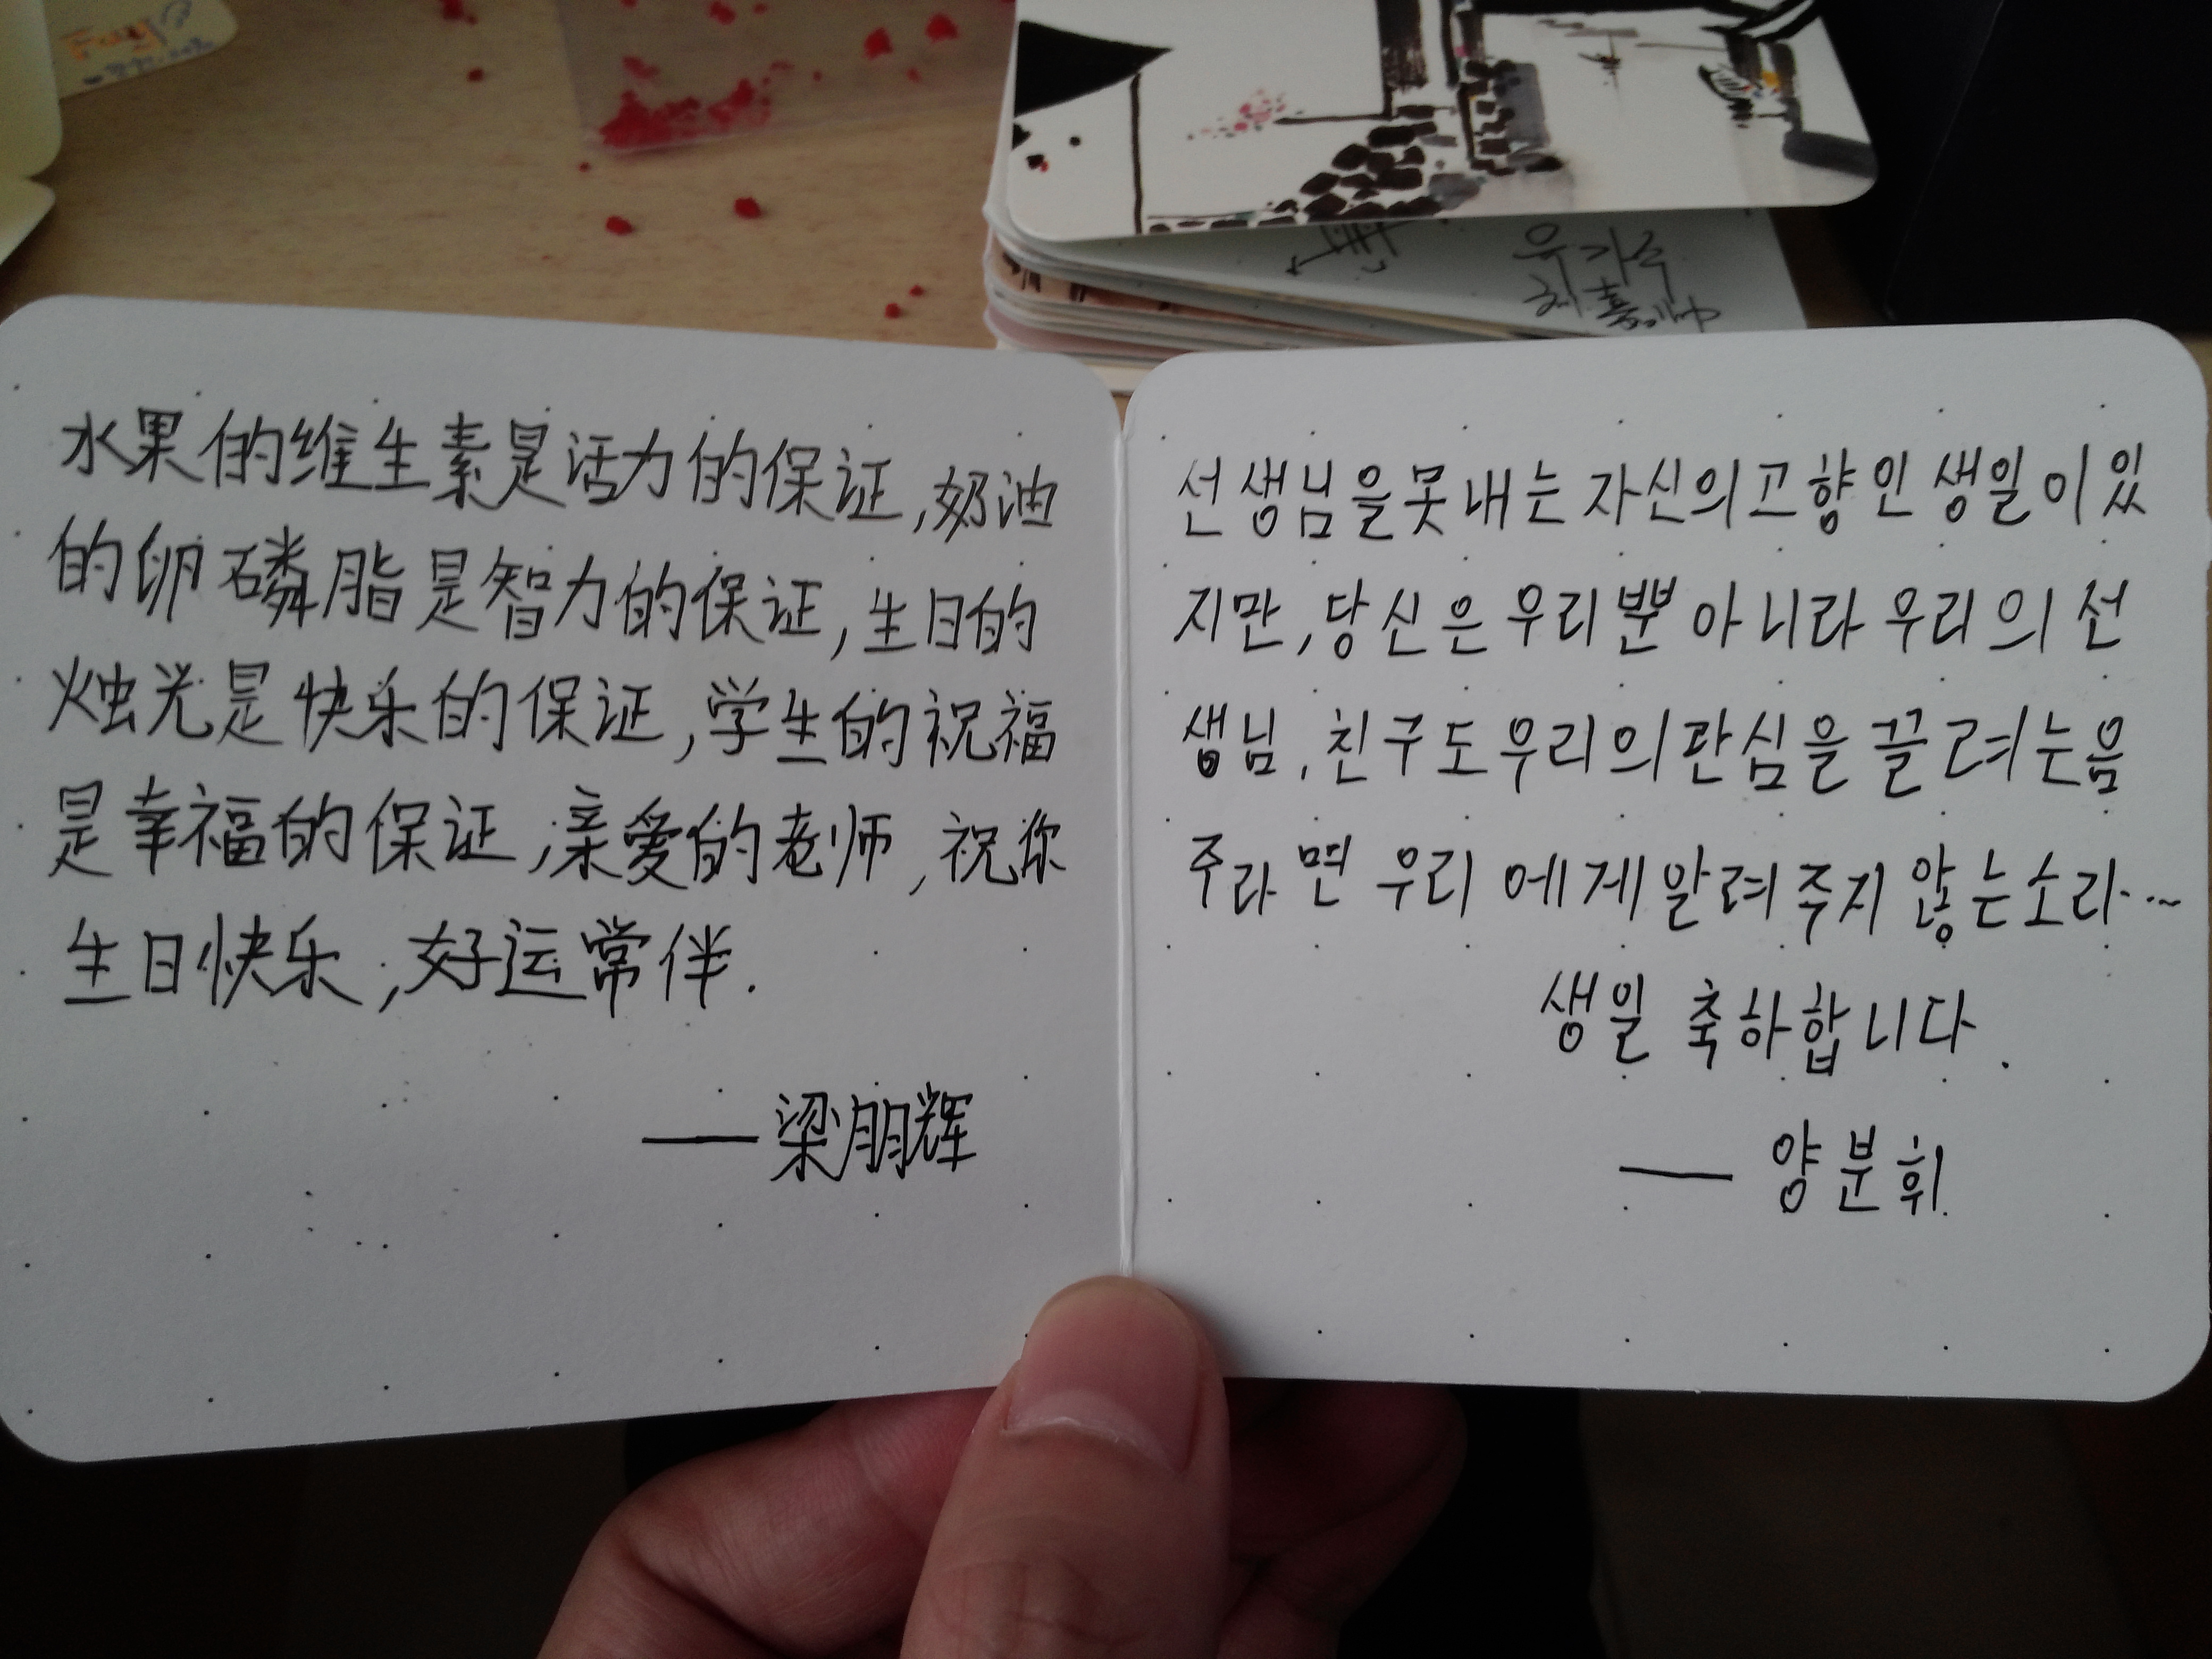 水果的维生素是活力的保证,奶油
的卵磷脂是智力的保证,生日的
烛光是快乐的保证,学生的祝福
是幸福的保证,亲爱的老师,祝你
生日快乐,好运常伴.
——梁朋辉
선생님을못내는자신의고향인생일이있
지만,당신은우리뿐아니라우리의선
생님,친구도우리의관심을끌려는음
주라면우리에게알려주지않는소라…
생일 축하합니다.
—— 양분휘